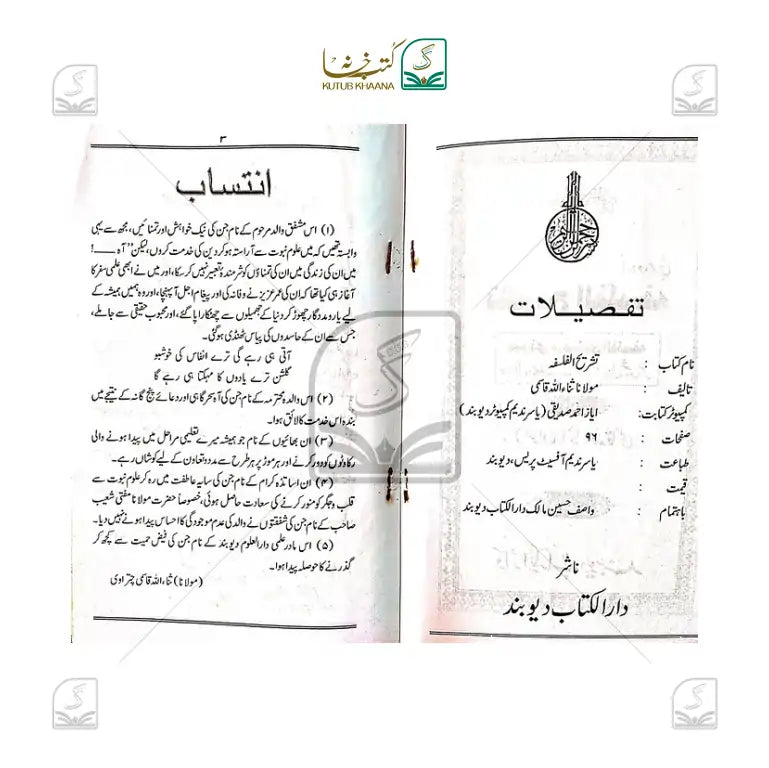 کتب خانہ
KUTUB KHAANA
تفصیلات
نام کتاب : تشریح الفلسفہ
تالیف : مولانا ثناء اللہ قاسمی
کمپیوٹر کتابت : ایاز احمد صدیقی (یاسر ندیم کمپیوٹر دیوبند)
صفحات : ۹۶
طباعت : یاسر ندیم آفسیٹ پریس، دیوبند
قیمت :
باہتمام : واصف حسین مالک دارالکتاب دیوبند
ناشر
دارالکتاب دیوبند
۳
انتساب
(۱) اس مشفق والد مرحوم کے نام جن کی نیک خواہش اور تمنائیں، مجھ سے یہی
وابستہ تھیں کہ میں علوم نبوت سے آراستہ ہو کر دین کی خدمت کروں، لیکن "آہ ——!
میں ان کی زندگی میں ان کی تمناؤں کو شرمندۂ تعبیر نہیں کر سکا، اور میں نے ابھی علمی سفر کا
آغاز ہی کیا تھا کہ ان کی عمر عزیز نے وفا نہ کی اور پیغام اجل آپہنچا، اور وہ ہمیں ہمیشہ کے
لیے بے یار و مددگار چھوڑ کر دنیا کے جھمیلوں سے چھٹکارا پا گئے، اور محبوب حقیقی سے جا ملے،
جس سے ان کے حاسدوں کی پیاس ٹھنڈی ہو گئی۔
آتی ہی رہے گی ترے انفاس کی خوشبو
گلشن ترے یادوں کا مہکتا ہی رہے گا
(۲) اس والدہ محترمہ کے نام جن کی آہ سحر گاہی اور دعائے پنج گانہ کے نتیجے میں
بندہ اس خدمت کا لائق ہوا۔
(۳) ان بھائیوں کے نام جو ہمیشہ میرے تعلیمی مراحل میں پیدا ہونے والی
رکاوٹوں کو دور کرنے اور ہر موڑ پر ہر طرح سے مدد و تعاون کے لیے کوشاں رہے۔
(۴) ان اساتذہ کرام کے نام جن کی سایہ عاطفت میں رہ کر علوم نبوت سے
قلب و جگر کو منور کرنے کی سعادت حاصل ہوئی، خصوصاً حضرت مولانا مفتی شعیب
صاحب کے نام جن کی شفقتوں نے والد کی عدم موجودگی کا احساس پیدا ہونے نہیں دیا۔
(۵) اس مادر علمی دارالعلوم دیوبند کے نام جن کی فیض حمیت سے کچھ کر
گذرنے کا حوصلہ پیدا ہوا۔
(مولانا) ثناء اللہ قاسمی چتراوی